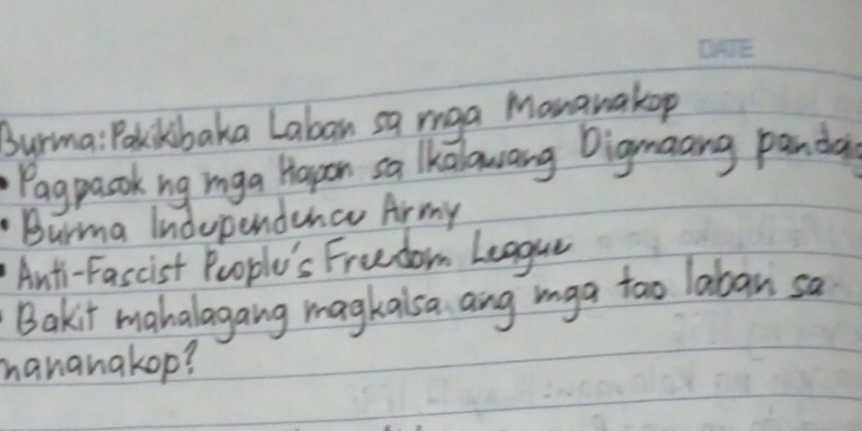 DATE
Burma: Pakikibaka Laban sa mga Mananakop
• Pagpasok ng mga Hapon sa Ikalawang Digmaang pandaig
• Burma Independence Army
• Anti-Fascist People's Freedom League
• Bakit mahalagang magkaisa ang mga tao laban sa
mananakop?